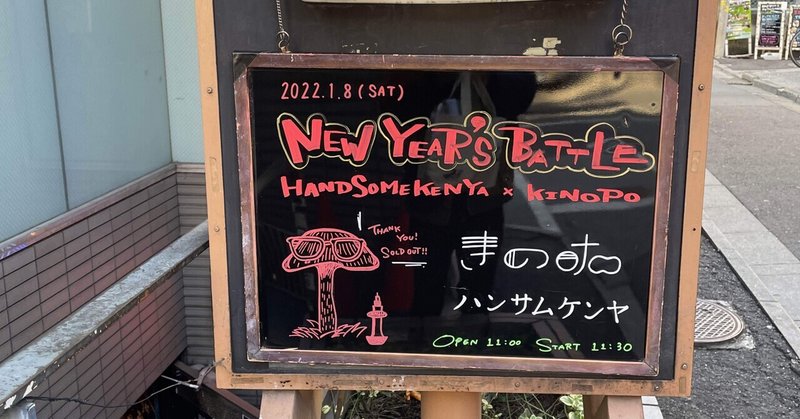 2022.1.8 (SAT)
NEW YEAR'S BATTLE
HANDSOMEKENYA × KINOPO
THANK YOU!
SOLD OUT!!
きのポ
ハンサムケンヤ
OPEN 11:00 START 11:30